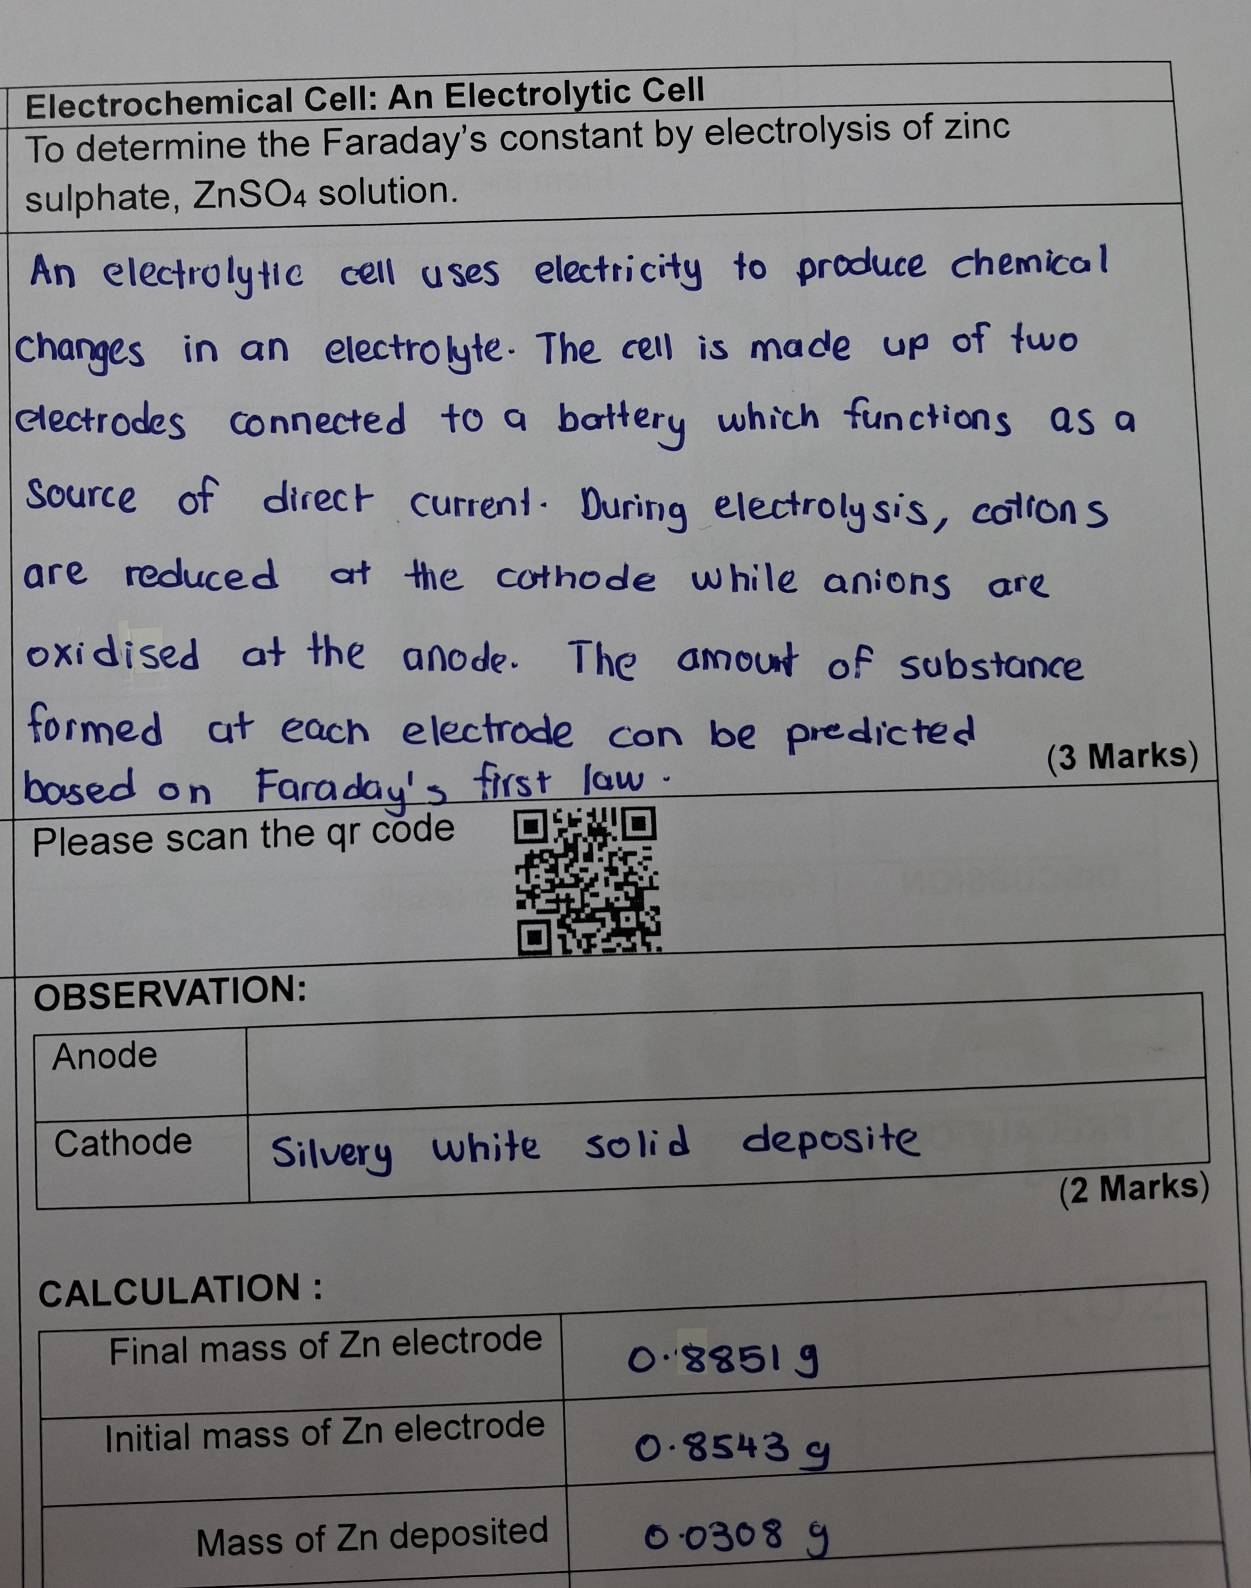 Electrochemical Cell: An Electrolytic Cell
To determine the Faraday's constant by electrolysis of zinc
sulphate, ZnSO₄ solution.
An electrolytic cell uses electricity to produce chemical
changes in an electrolyte. The cell is made up of two
electrodes connected to a battery which functions as a
source of direct current. During electrolysis, cations
are reduced at the cathode while anions are
oxidised at the anode. The amount of substance
formed at each electrode can be predicted
(3 Marks)
based on Faraday's first law.
Please scan the qr code
OBSERVATION:
Anode
Cathode Silvery white solid deposite
(2 Marks)
CALCULATION :
Final mass of Zn electrode 0.8851 g
Initial mass of Zn electrode 0.8543 g
Mass of Zn deposited 0.0308 g